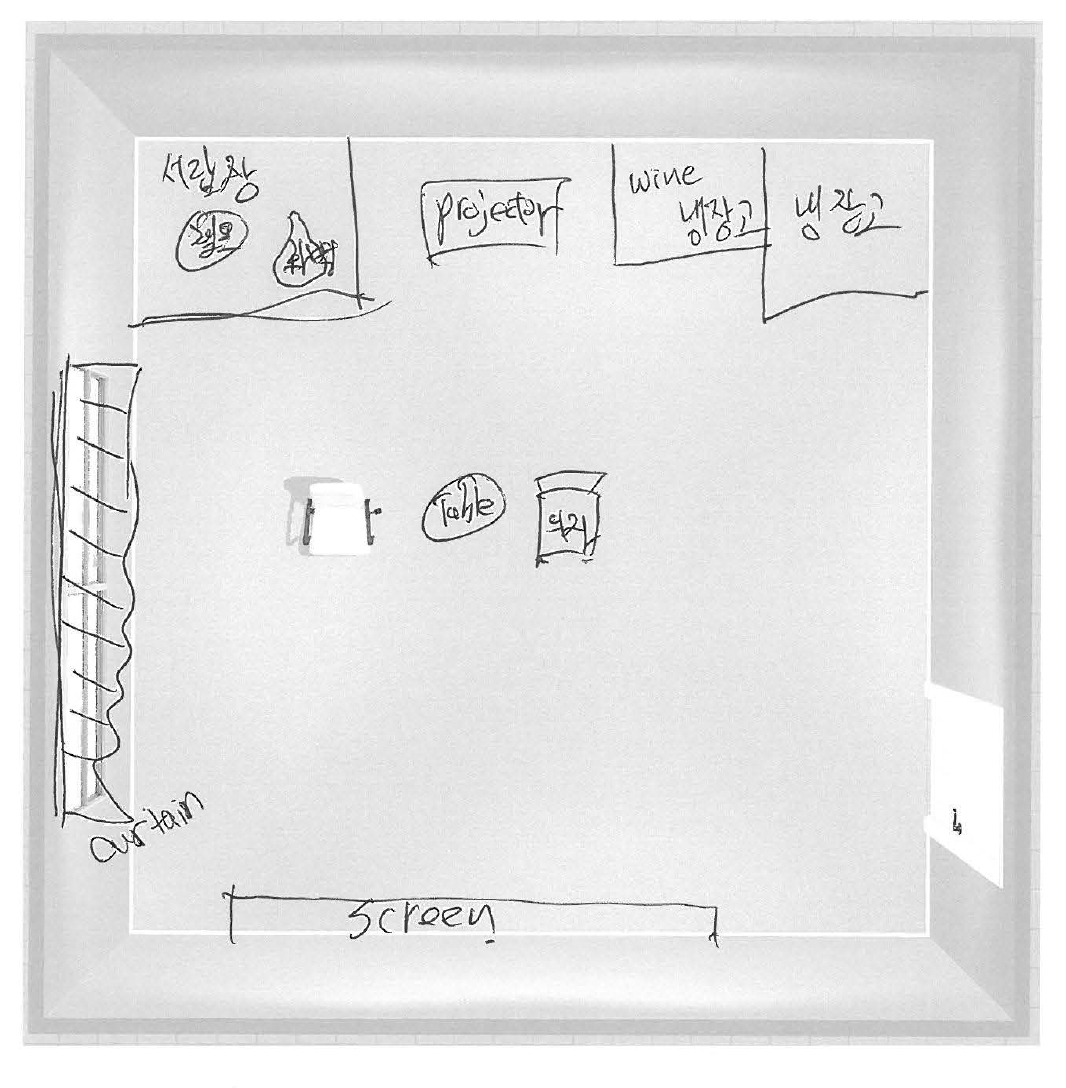 서랍장
projector
wine
냉장고
냉장고
Table
의자
curtain
screen